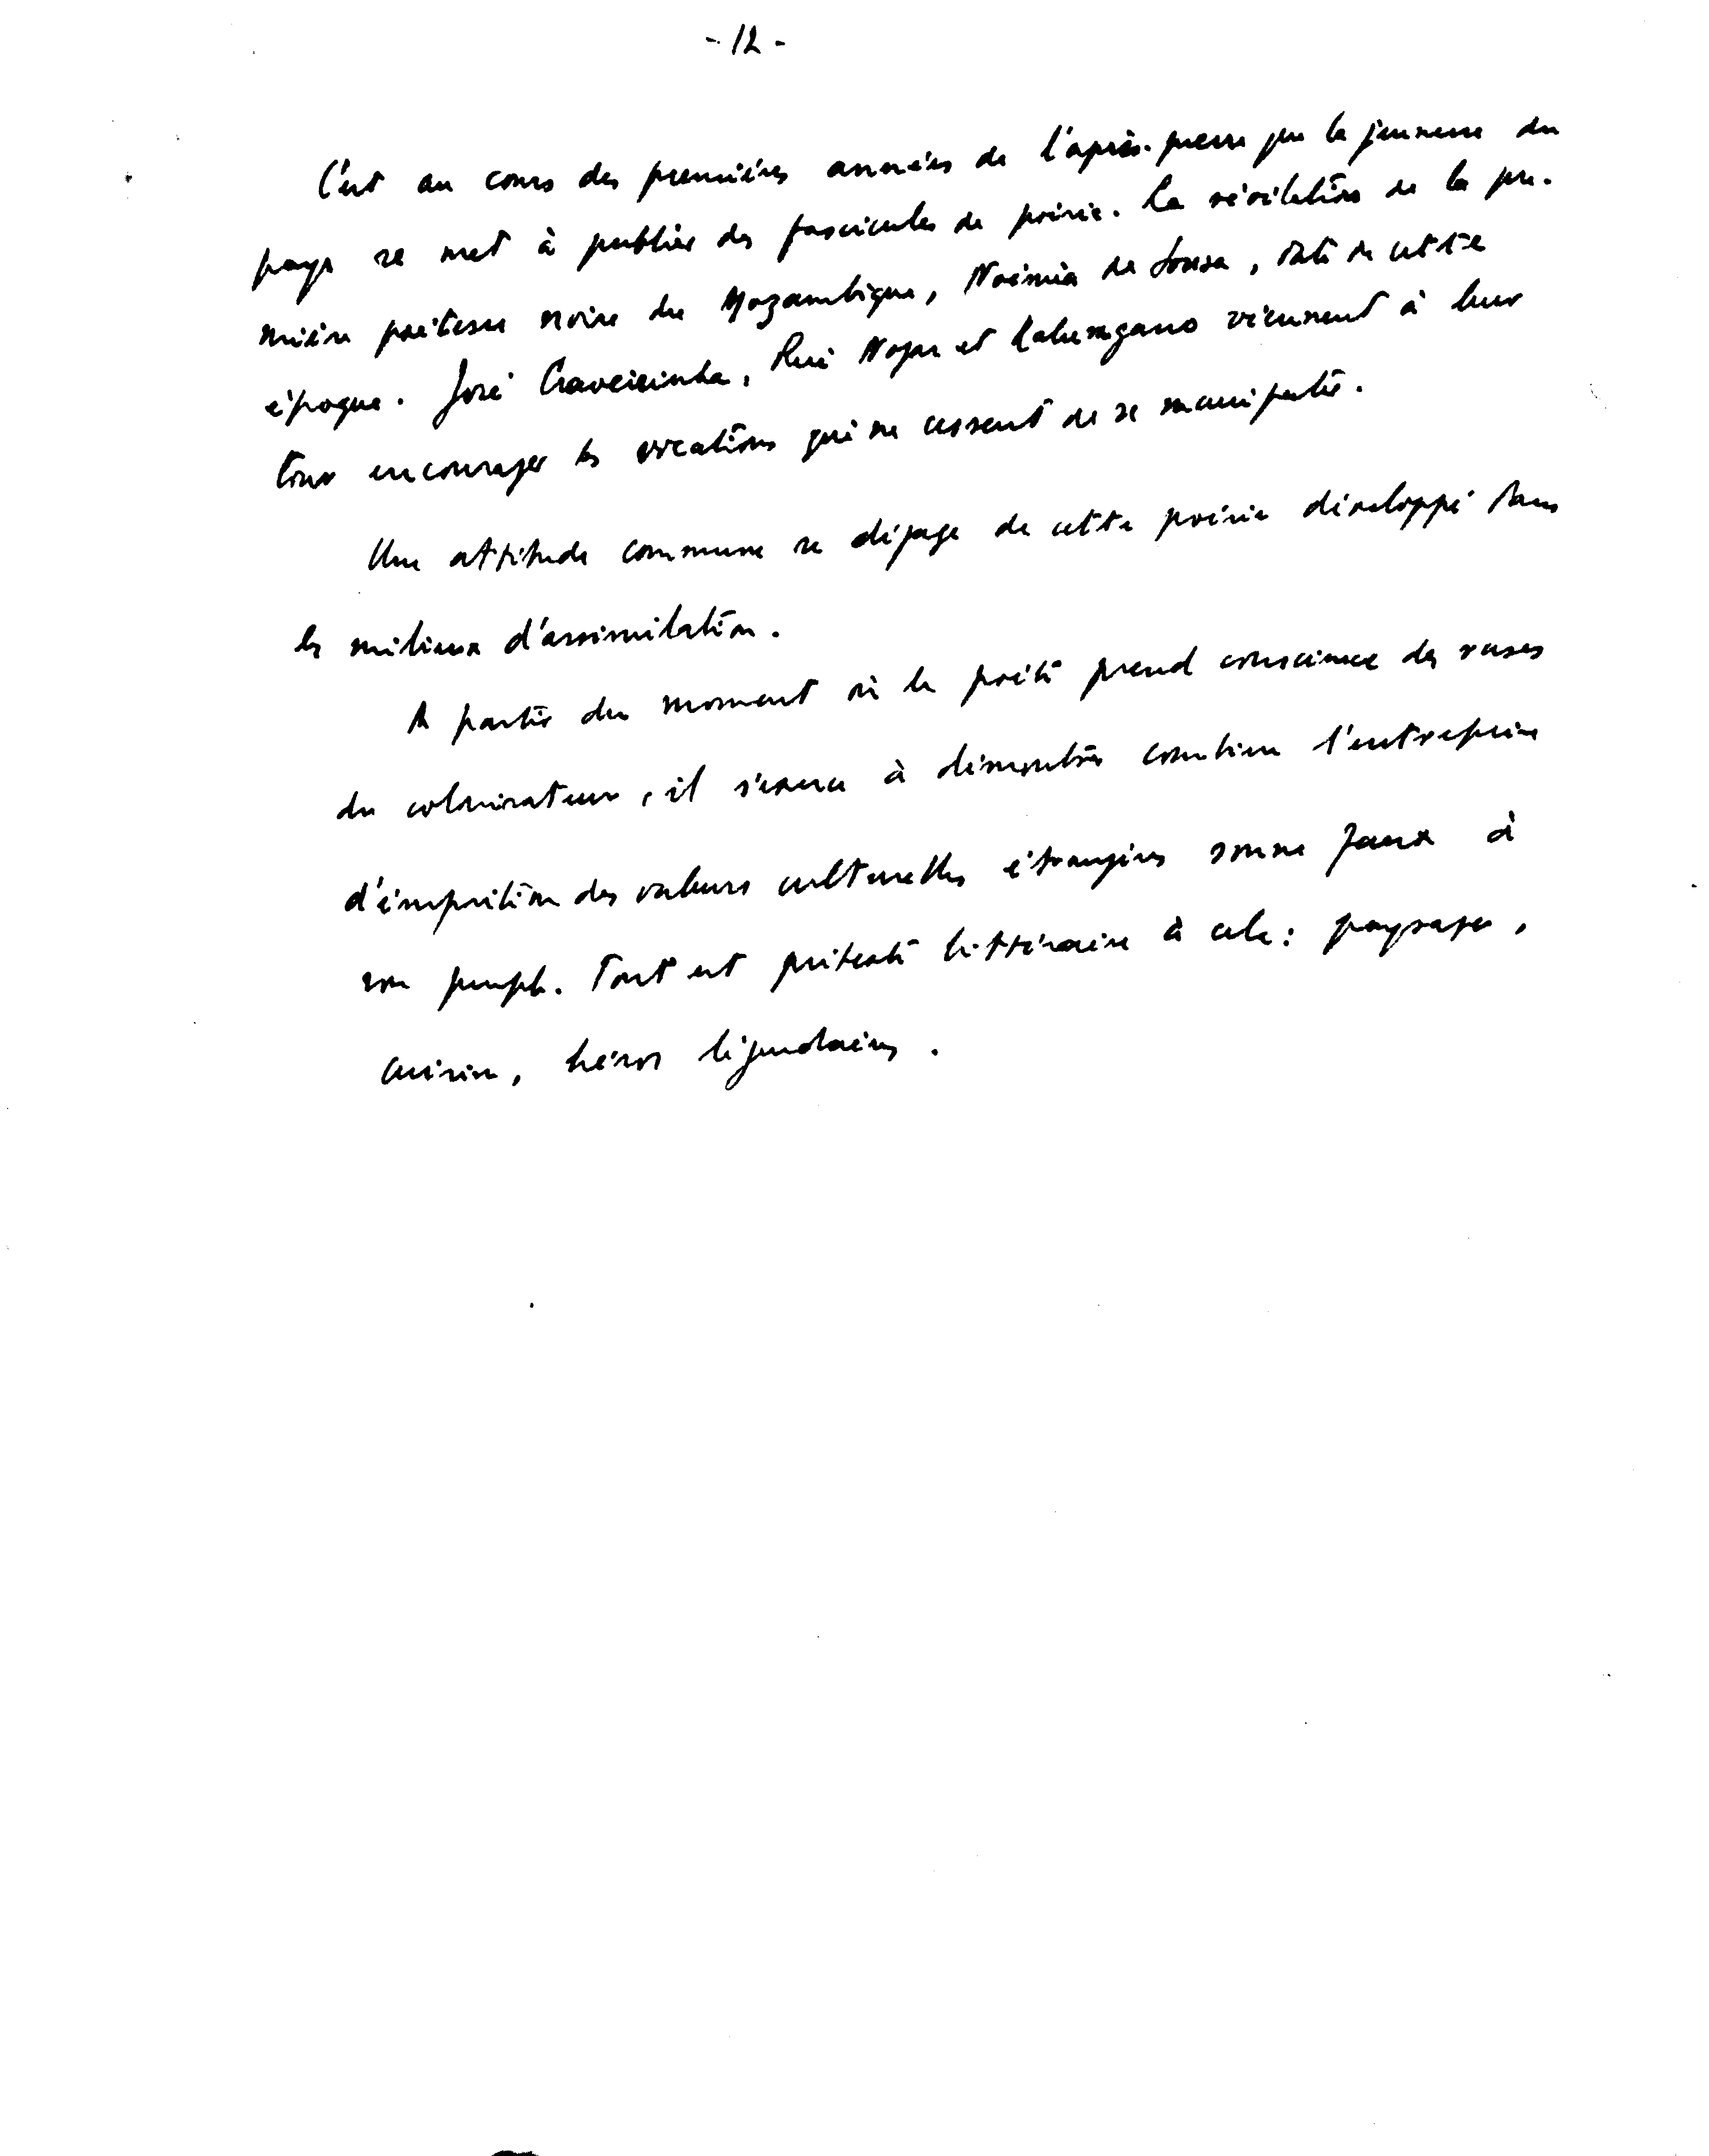 - 12 -
C'est au cours des premières années de l'après-guerre que la jeunesse du
pays se met à publier des fascicules de poésie. La révélation de la pre-
mière poétesse noire du Mozambique, Noémia de Sousa, date de cette
époque. José Craveirinha, Rui Nogar et Kalungano viennent à leur
tour encourager les vocations qui ne cessent de se manifester.
Une attitude commune se dégage de cette poésie développé dans
les milieux d'assimilation.
A partir du moment où le poète prend conscience des ruses
du colonisateur, il s'exerce à démontrer combien l'entreprise
d'imposition des valeurs culturelles étrangères sonne faux à
son peuple. Tout est prétexte littéraire à cela : paysages,
cuisine, héros légendaires.